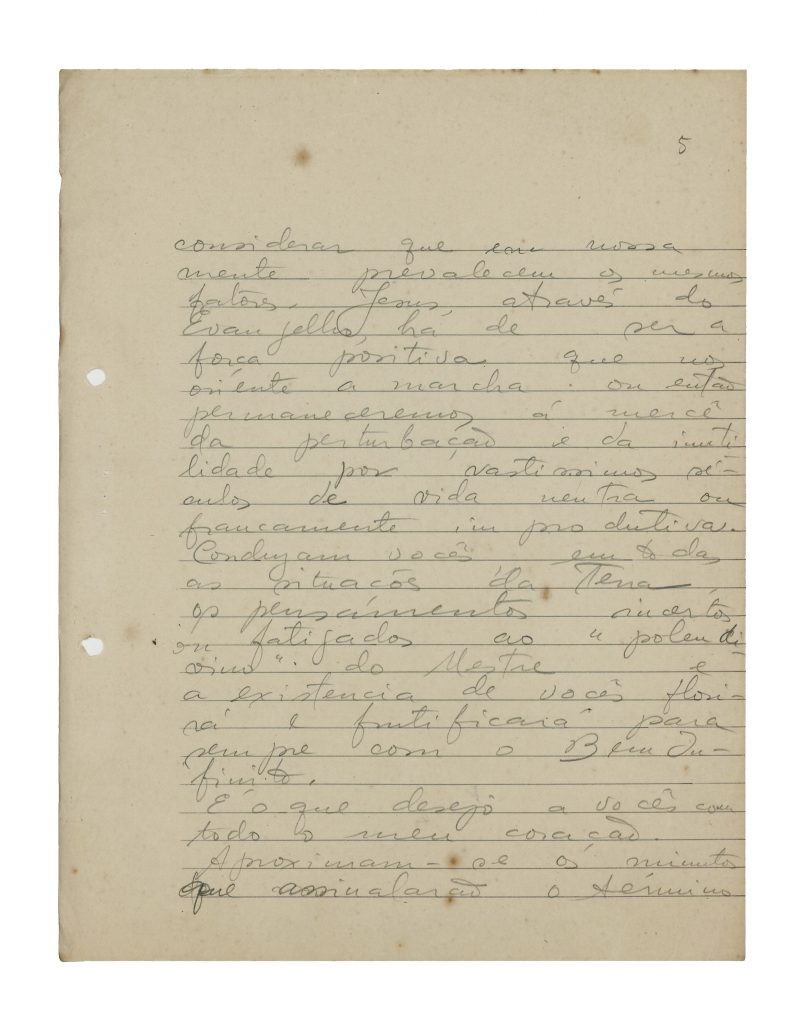 5
considerar que em nossa
mente prevalecem os mesmos
fatôres. Jesus, através do
Evangelho, há de ser a
força positiva que nos
oriente a marcha. ou então
permaneceremos á mercê
da perturbação e da inuti
lidade por vastissimos sé-
culos de vida neutra ou
francamente improdutiva.
Conduzam vocês em todas
as situacões da Terra,
os pensamentos incertos
ou fatigados ao "polen di-
vino". do Mestre e
a existencia de vocês flori-
rá e frutificará para
sempre com o Bem In-
finito.
É o que desejo a vocês com
todo o meu coração.
Aproximam-se os minutos
que assinalarão o término